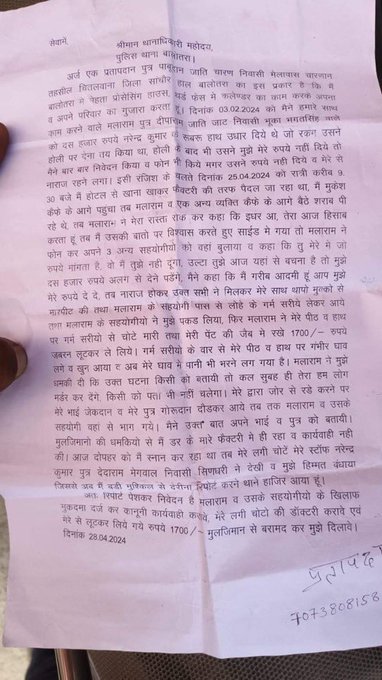 सेवामें,
श्रीमान थानाधिकारी महोदय,
पुलिस थाना बालोतरा।
अर्ज एक प्रतापदान पुत्र पाबुदान जाति चारण निवासी मेलावास चारणान
तहसील चितलवाना जिला सांचोर हाल बालोतरा का इस प्रकार है कि मैं
बालोतरा में मेहता प्रोसेसिंग हाउस, थर्ड फेस मे कलेण्डर का काम करके अपना
व अपने परिवार का गुजारा करता हूं। दिनांक 03.02.2024 को मैने हमारे साथ
काम करने वाले मलाराम पुत्र दीपाराम जाति जाट निवासी भूका भगतसिंह वाले
को दस हजार रुपये नरेन्द्र कुमार के रूबरू हाथ उधार दिये थे जो रकम उसने
होली पर देना तय किया था, होली के बाद भी उसने मुझे मेरे रुपये नहीं दिये तो
मैने बार बार निवेदन किया व फोन भी किये मगर उसने रुपये नही दिये व मेरे से
नाराज रहने लगा। इसी रंजिश के चलते दिनांक 25.04.2024 को रात्री करीब 9.
30 बजे मैं होटल से खाना खाकर फैक्टरी की तरफ पैदल जा रहा था, मैं मुकेश
कैफे के आगे पहुंचा तब मलाराम व एक अन्य व्यक्ति कैफे के आगे बैठे शराब पी
रहे थे, तब मलाराम ने मेरा रास्ता रोक कर कहा कि इधर आ, तेरा आज हिसाब
करता हूं, तब मैं उसकी बातो पर विश्वास करते हुए साईड मे गया तो मलाराम ने
फोन कर अपने 3 अन्य सहयोगीयो को वहां बुलाया व कहा कि तु मेरे मे जो
रुपये मांगता है, वो मैं तुझे नही दूंगा, उल्टा तुझे आज यहां से बचना है तो मुझे
दस हजार रुपये अलग से देने पडेंगे, मैने कहा कि मैं गरीब आदमी हूं आप मुझे
मेरे रुपये दे दे, तब नाराज होकर उक्त सभी ने मिलकर मेरे साथ थापो मुक्को से
मारपीट की तथा मलाराम के सहयोगी पास से लोहे के गर्म सरीये लेकर आये
तथा मलाराम के सहयोगीयो ने मुझे पकड लिया, फिर मलाराम ने मेरे पीठ व हाथ
पर गर्म सरीयो से चोटे मारी तथा मेरी पेंट की जेब मे रखे 1700/– रुपये
जबरन लूटकर ले लिये। गर्म सरीयो के वार से मेरे पीठ व हाथ पर गंभीर घाव
लगे व खुन आया व अब मेरे घाव में पानी भी भरने लग गया है। मलाराम ने मुझे
धमकी दी कि उक्त घटना किसी को बतायी तो कल सुबह ही तेरा हम लोग
मर्डर कर देंगे, किसी को पता भी नहीं चलेगा। मेरे द्वारा जोर से रडे करने पर
मेरे भाई जेकदान व मेरे पुत्र गोरूदान दौडकर आये तब तक मलाराम व उसके
सहयोगी वहां से भाग गये। मैने उक्त बात अपने भाई व पुत्र को बतायी।
मुलजिमानो की धमकियो से मैं डर के मारे फैक्टरी मे ही रहा व कार्यवाही नही
की। आज दोपहर को मैं स्नान कर रहा था तब मेरे लगी चोटें मेरे स्टॉफ नरेन्द्र
कुमार पुत्र देदाराम मेगवाल निवासी सिणधरी ने देखी व मुझे हिम्मत बंधाया
जिससे अब मैं बडी मुश्किल से देरीना रिपोर्ट करने थाने हाजिर आया हूं।
अतः रिपोर्ट पेशकर निवेदन है मलाराम व उसके सहयोगीयो के खिलाफ
मुकदमा दर्ज कर कानूनी कार्यवाही करावे, मेरे लगी चोटो की डॉक्टरी करावे एवं
मेरे से लूटकर लिये गये रुपये 1700/– मुलजिमान से बरामद कर मुझे दिलावे।
दिनांक 28.04.2024
7073808158